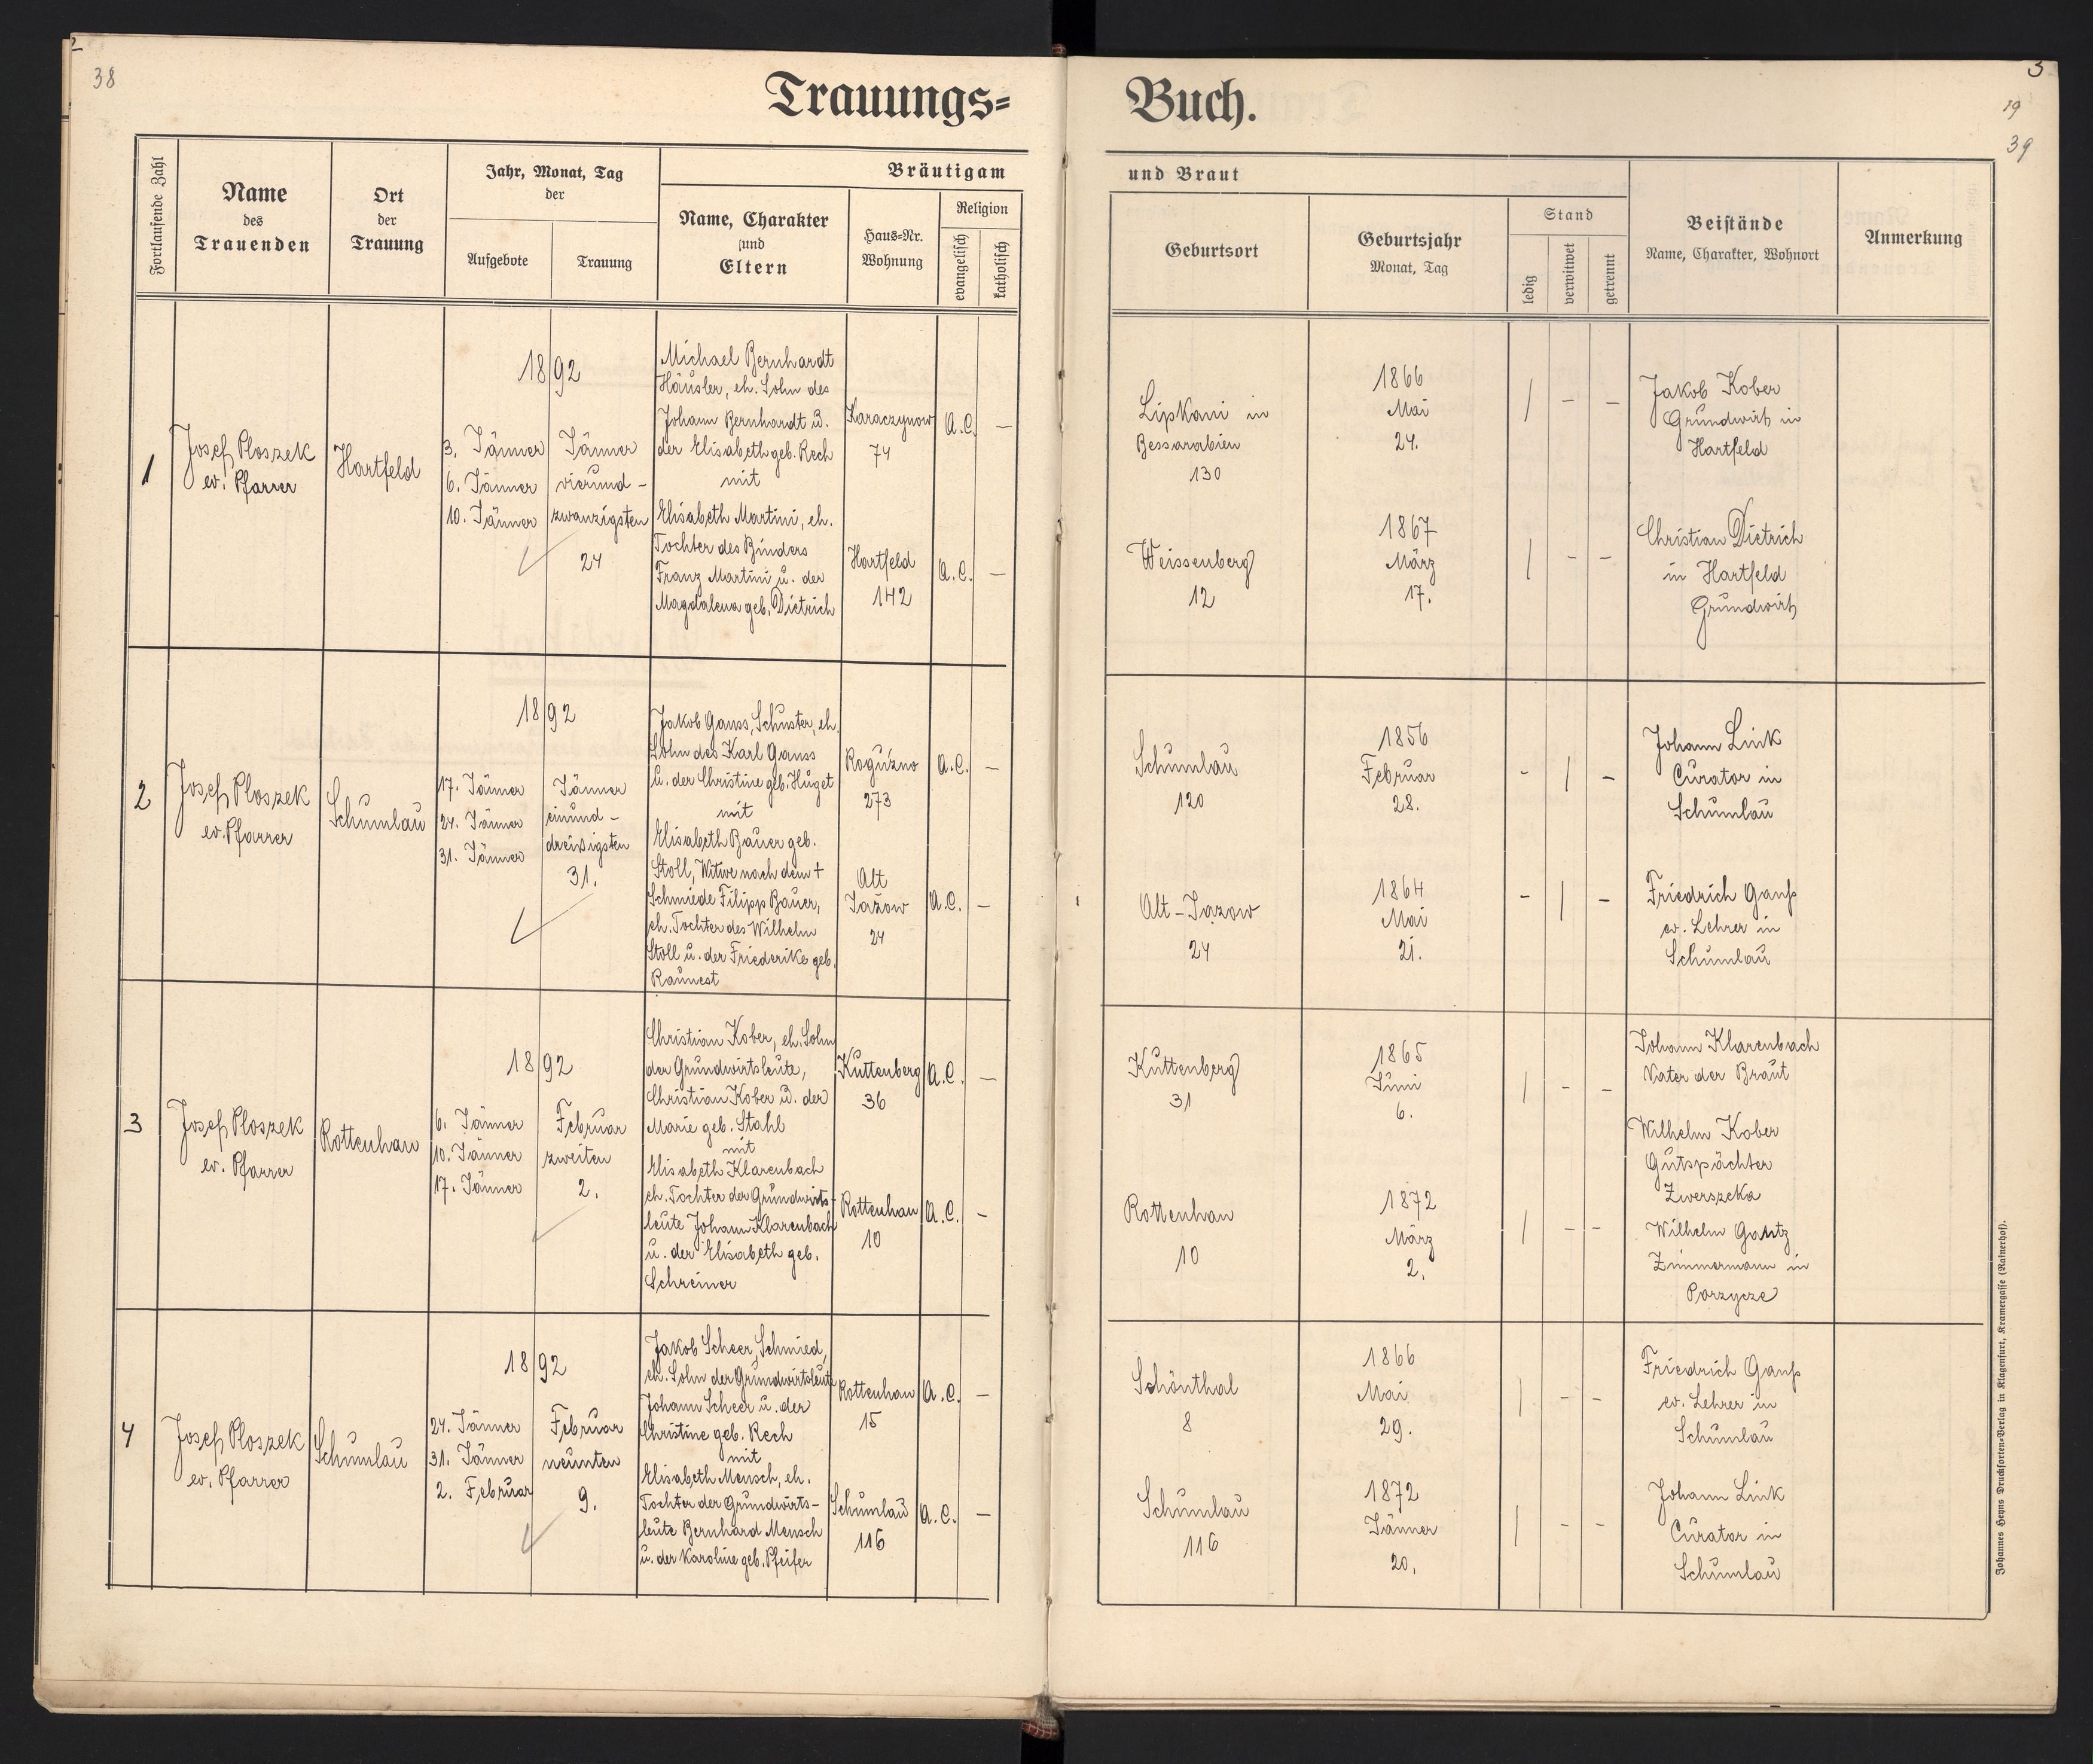 2
38
Trauungs=
Buch.
3
19
39
Fortlaufende Zahl
Name
des
Trauenden
Ort
der
Trauung
Jahr, Monat, Tag
der
Aufgebote
Trauung
Bräutigam
Name, Charakter
und
Eltern
Haus=Nr.
Wohnung
Religion
evangelisch
katholisch
und Braut
Geburtsort
Geburtsjahr
Monat, Tag
Stand
ledig
verwitwet
getrennt
Beistände
Name, Charakter, Wohnort
Anmerkung
1
Josef Ploszek
ev. Pfarrer
Hartfeld
1892
3. Jänner
6. Jänner
10. Jänner
Jänner
vierund-
zwanzigsten
24
Michael Bernhardt
Häusler, eh. Sohn des
Johann Bernhardt u.
der Elisabeth geb. Rech
mit
Elisabeth Martini, eh.
Tochter des Binders
Franz Martini u. der
Magdalena geb. Dietrich
Karaczynow
74
A.C. –
Hartfeld
142
A.C. –
Lipkani in
Bessarabien
130
1866
Mai
24.
/ – –
Jakob Kober
Grundwirth in
Hartfeld
Weissenberg
12
1867
März
17.
/ – –
Christian Dietrich
in Hartfeld
Grundwirth
2
Josef Ploszek
ev. Pfarrer
Schumlau
1892
17. Jänner
24. Jänner
31. Jänner
Jänner
einund-
dreißigsten
31.
Jakob Ganss, Schuster, eh.
Sohn des Karl Ganss
u. der Christine geb. Huget
mit
Elisabeth Bauer geb.
Stoll, Witwe nach dem †
Schmiede Filipp Bauer,
eh. Tochter des Wilhelm
Stoll u. der Friederike geb.
Raunest
Roguźno
273
A.C. –
Alt
Jažow
24
A.C. –
Schumlau
120
1856
Februar
28.
– / –
Johann Link
Curator in
Schumlau
Alt-Jazow
24
1864
Mai
21.
– / –
Friedrich Ganß
ev. Lehrer in
Schumlau
3
Josef Ploszek
ev. Pfarrer
Rottenhan
1892
6. Jänner
10. Jänner
17. Jänner
Februar
zweiten
2.
Christian Kober, eh. Sohn
der Grundwirtsleute,
Christian Kober u. der
Marie geb. Stahl
mit
Elisabeth Klarenbach
eh. Tochter der Grundwirts-
leute Johann Klarenbach
u. der Elisabeth geb.
Schreiner
Kuttenberg
36
A.C. –
Rottenhan
10
A.C. –
Kuttenberg
31
1865
Juni
6.
/ – –
Johann Klarenbach
Vater der Braut
Wilhelm Kober
Gutspächter
Zwerszeka
Rottenhan
10
1872
März
2.
/ – –
Wilhelm Gantz
Zimmermann in
Porzycze
4
Josef Ploszek
ev. Pfarrer
Schumlau
1892
24. Jänner
31. Jänner
2. Februar
Februar
neunten
9.
Jakob Scheer, Schmied,
eh. Sohn der Grundwirtsleute
Johann Scheer u. der
Christine geb. Rech
mit
Elisabeth Mensch, eh.
Tochter der Grundwirts-
leute Bernhard Mensch
u. der Karoline geb. Pfeifer
Rottenhan
15
A.C. –
Schumlau
116
A.C. –
Schönthal
8
1866
Mai
29.
/ – –
Friedrich Ganß
ev. Lehrer in
Schumlau
Schumlau
116
1872
Jänner
20.
/ – –
Johann Link
Curator in
Schumlau
Johannes Heyns Drucksorten=Verlag in Klagenfurt, Kramergasse (Rainerhof).